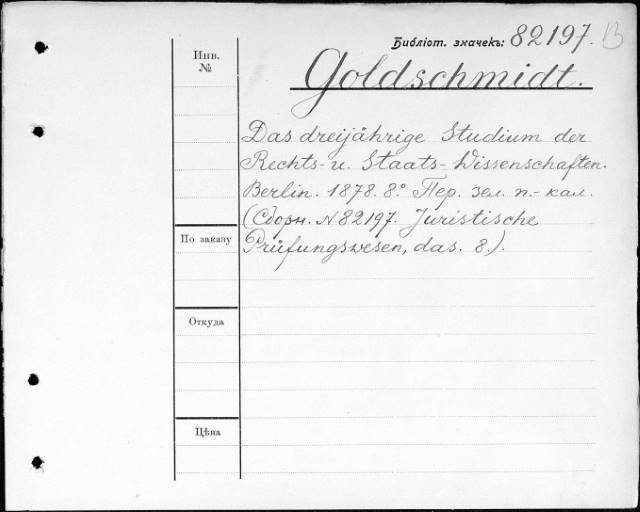 Библіот. значекъ: 82197. B
Goldschmidt.
Инв.
№
Das dreijährige Studium der
Rechts- u. Staats-Wissenschaften.
Berlin. 1878. 8.° Пер. зел. п.-кал.
(Сборн. N 82197. Juristische
Prüfungswesen, das. 8.).
По заказу
Откуда
Цѣна